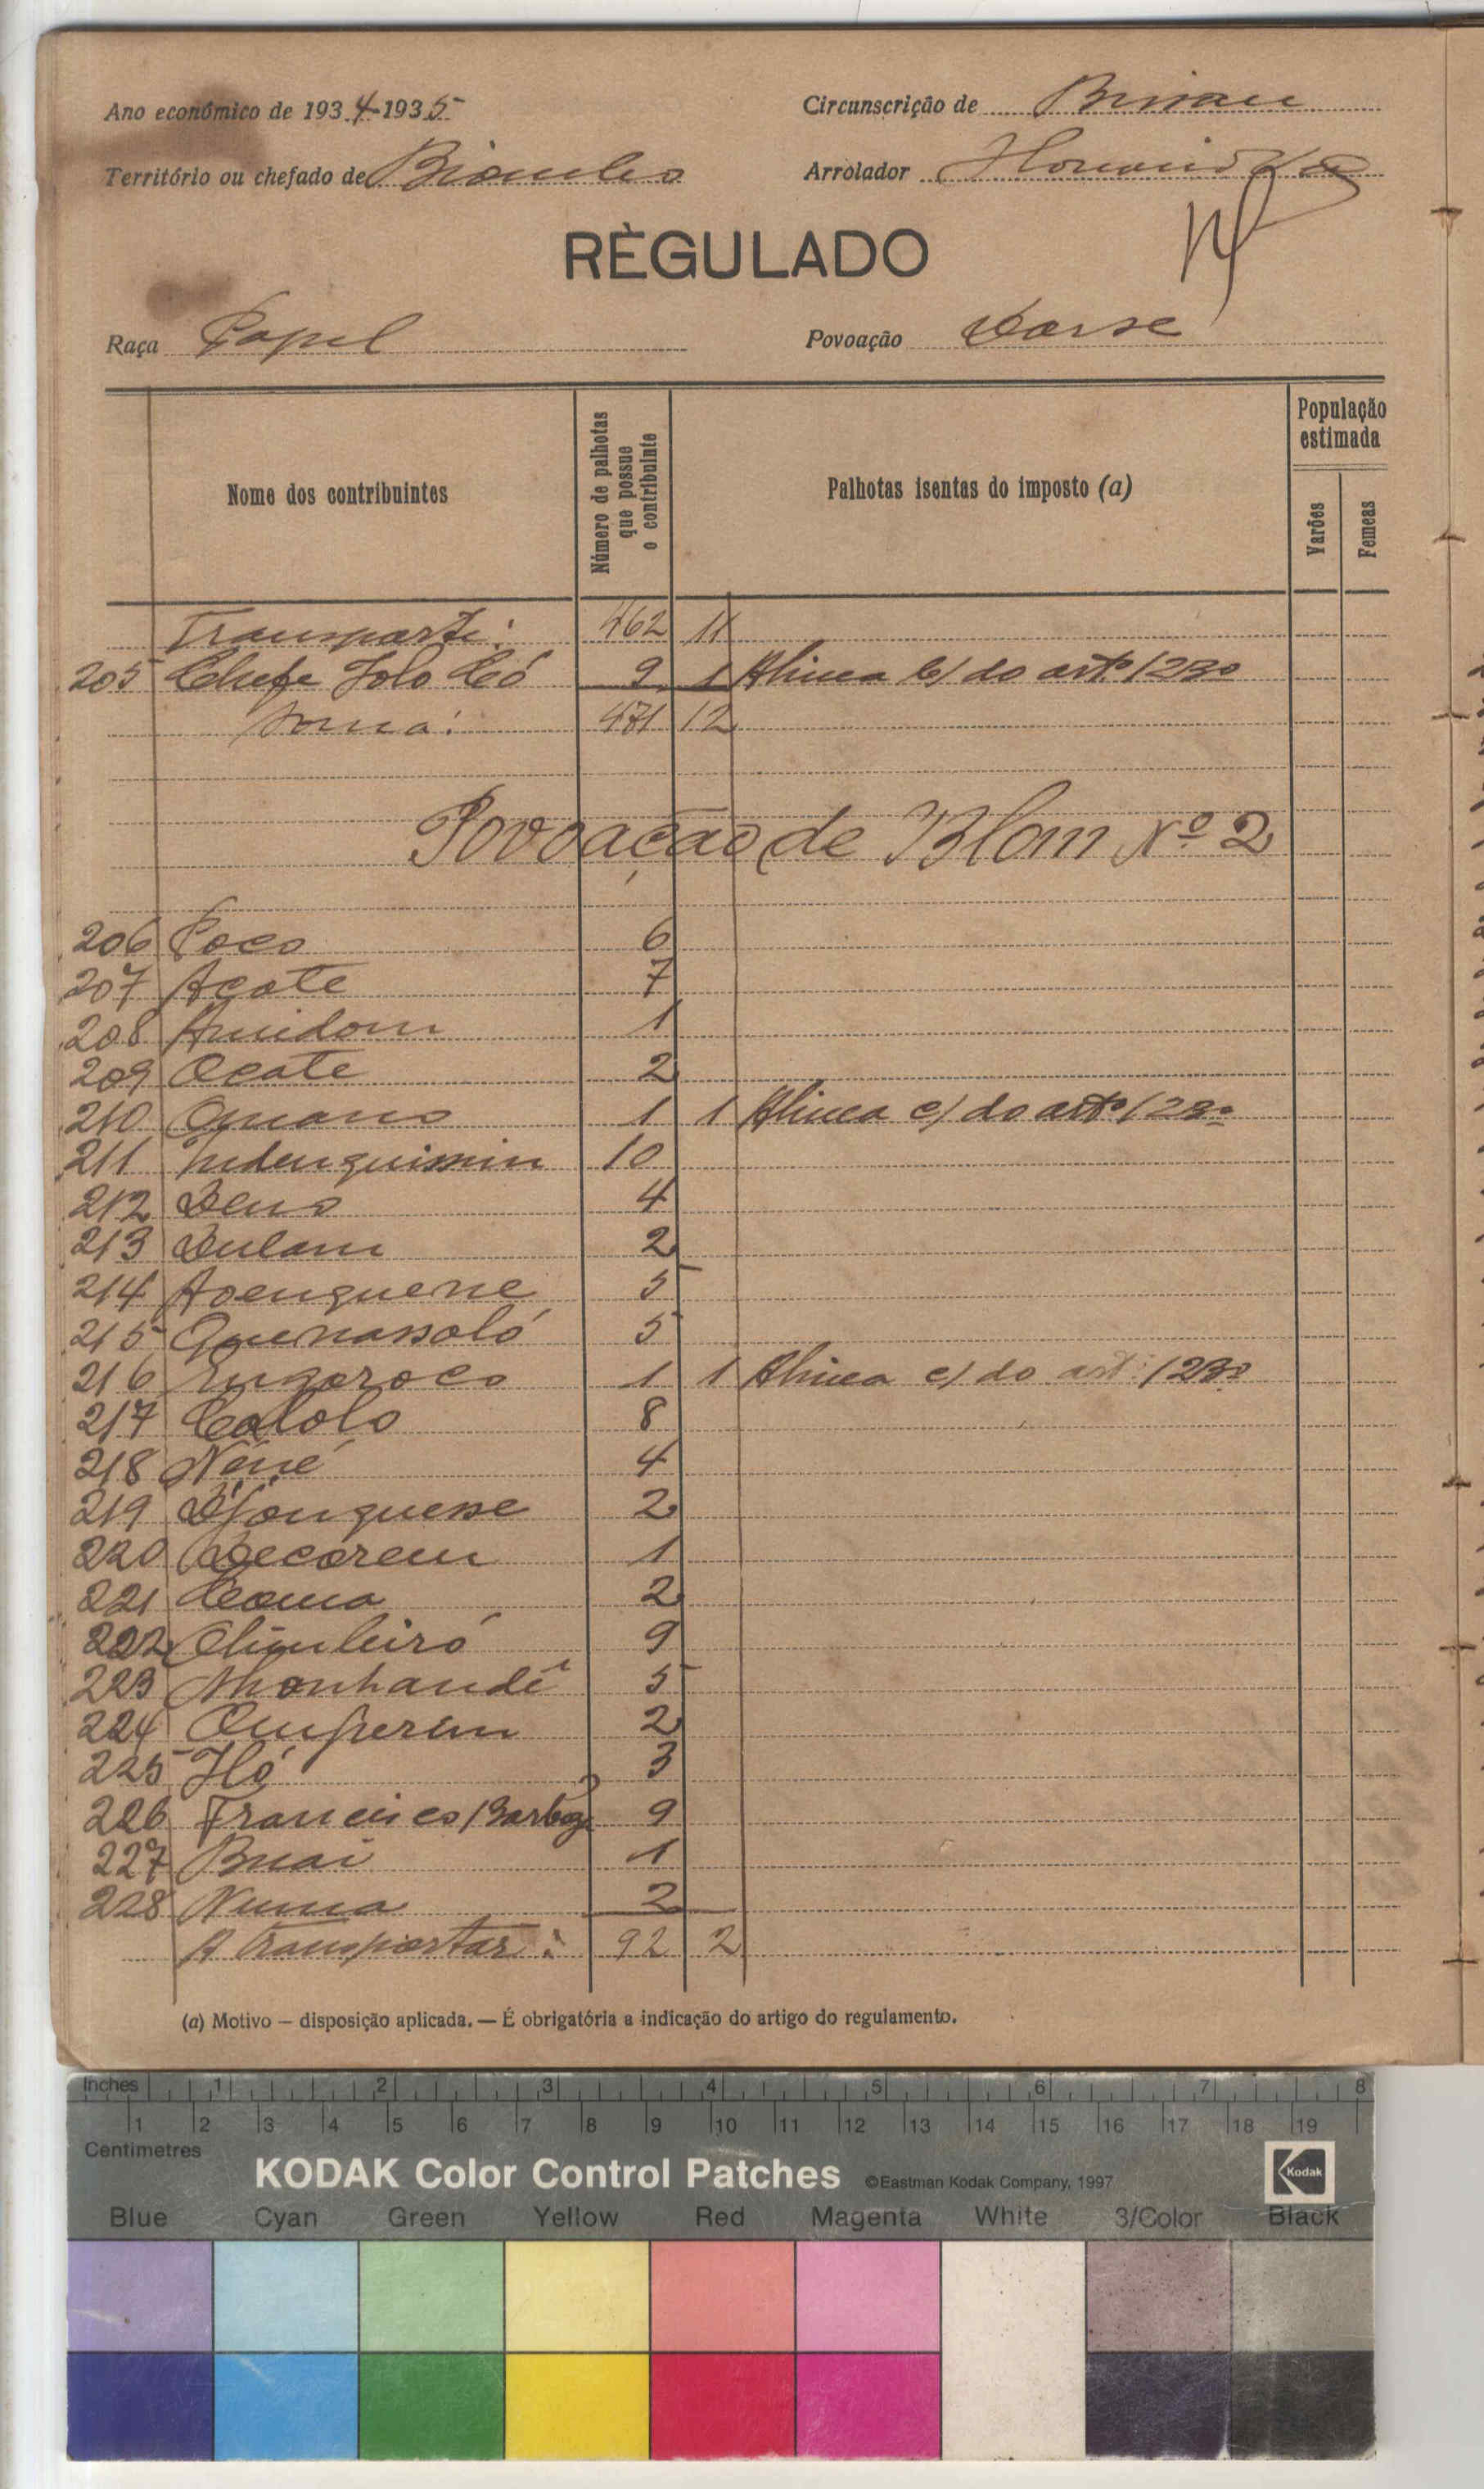 Ano económico de 1934-1935
Circunscrição de Bissau
Território ou chefado de Biombo
Arrolador
RÈGULADO
Raça Papel
Povoação Dorse
Nome dos contribuintes
Número de palhotas que possue o contribuinte
Palhotas isentas do imposto (a)
População estimada
Varões
Femeas
Transporte: 462 11
205 Chefe Jolo Có 9 1 Alinea b) do artº 123º
Soma: 471 12
Povoação de Blom Nº 2
206 Poco 6
207 Acate 7
208 Amidom 1
209 Ocate 2
210 1 1 Alinea c) do artº 123º
211 10
212 4
213 Dulam 2
214 Aoenguene 5
215 Quenassoló 5
216 Engoroco 1 1 Alinea c) do artº 123º
217 Cololo 8
218 Néné 4
219 Djonguesse 2
220 Becorem 1
221 2
222 9
223 Monhandê 5
224 2
225 3
226 Francisco Barboza 9
227 Buai 1
228 Numa 2
A transportar: 92 2
(a) Motivo — disposição aplicada. — É obrigatória a indicação do artigo do regulamento.
Inches 1 2 3 4 5 6 7 8
1 2 3 4 5 6 7 8 9 10 11 12 13 14 15 16 17 18 19
Centimetres
KODAK Color Control Patches ©Eastman Kodak Company, 1997 Kodak
Blue Cyan Green Yellow Red Magenta White 3/Color Black